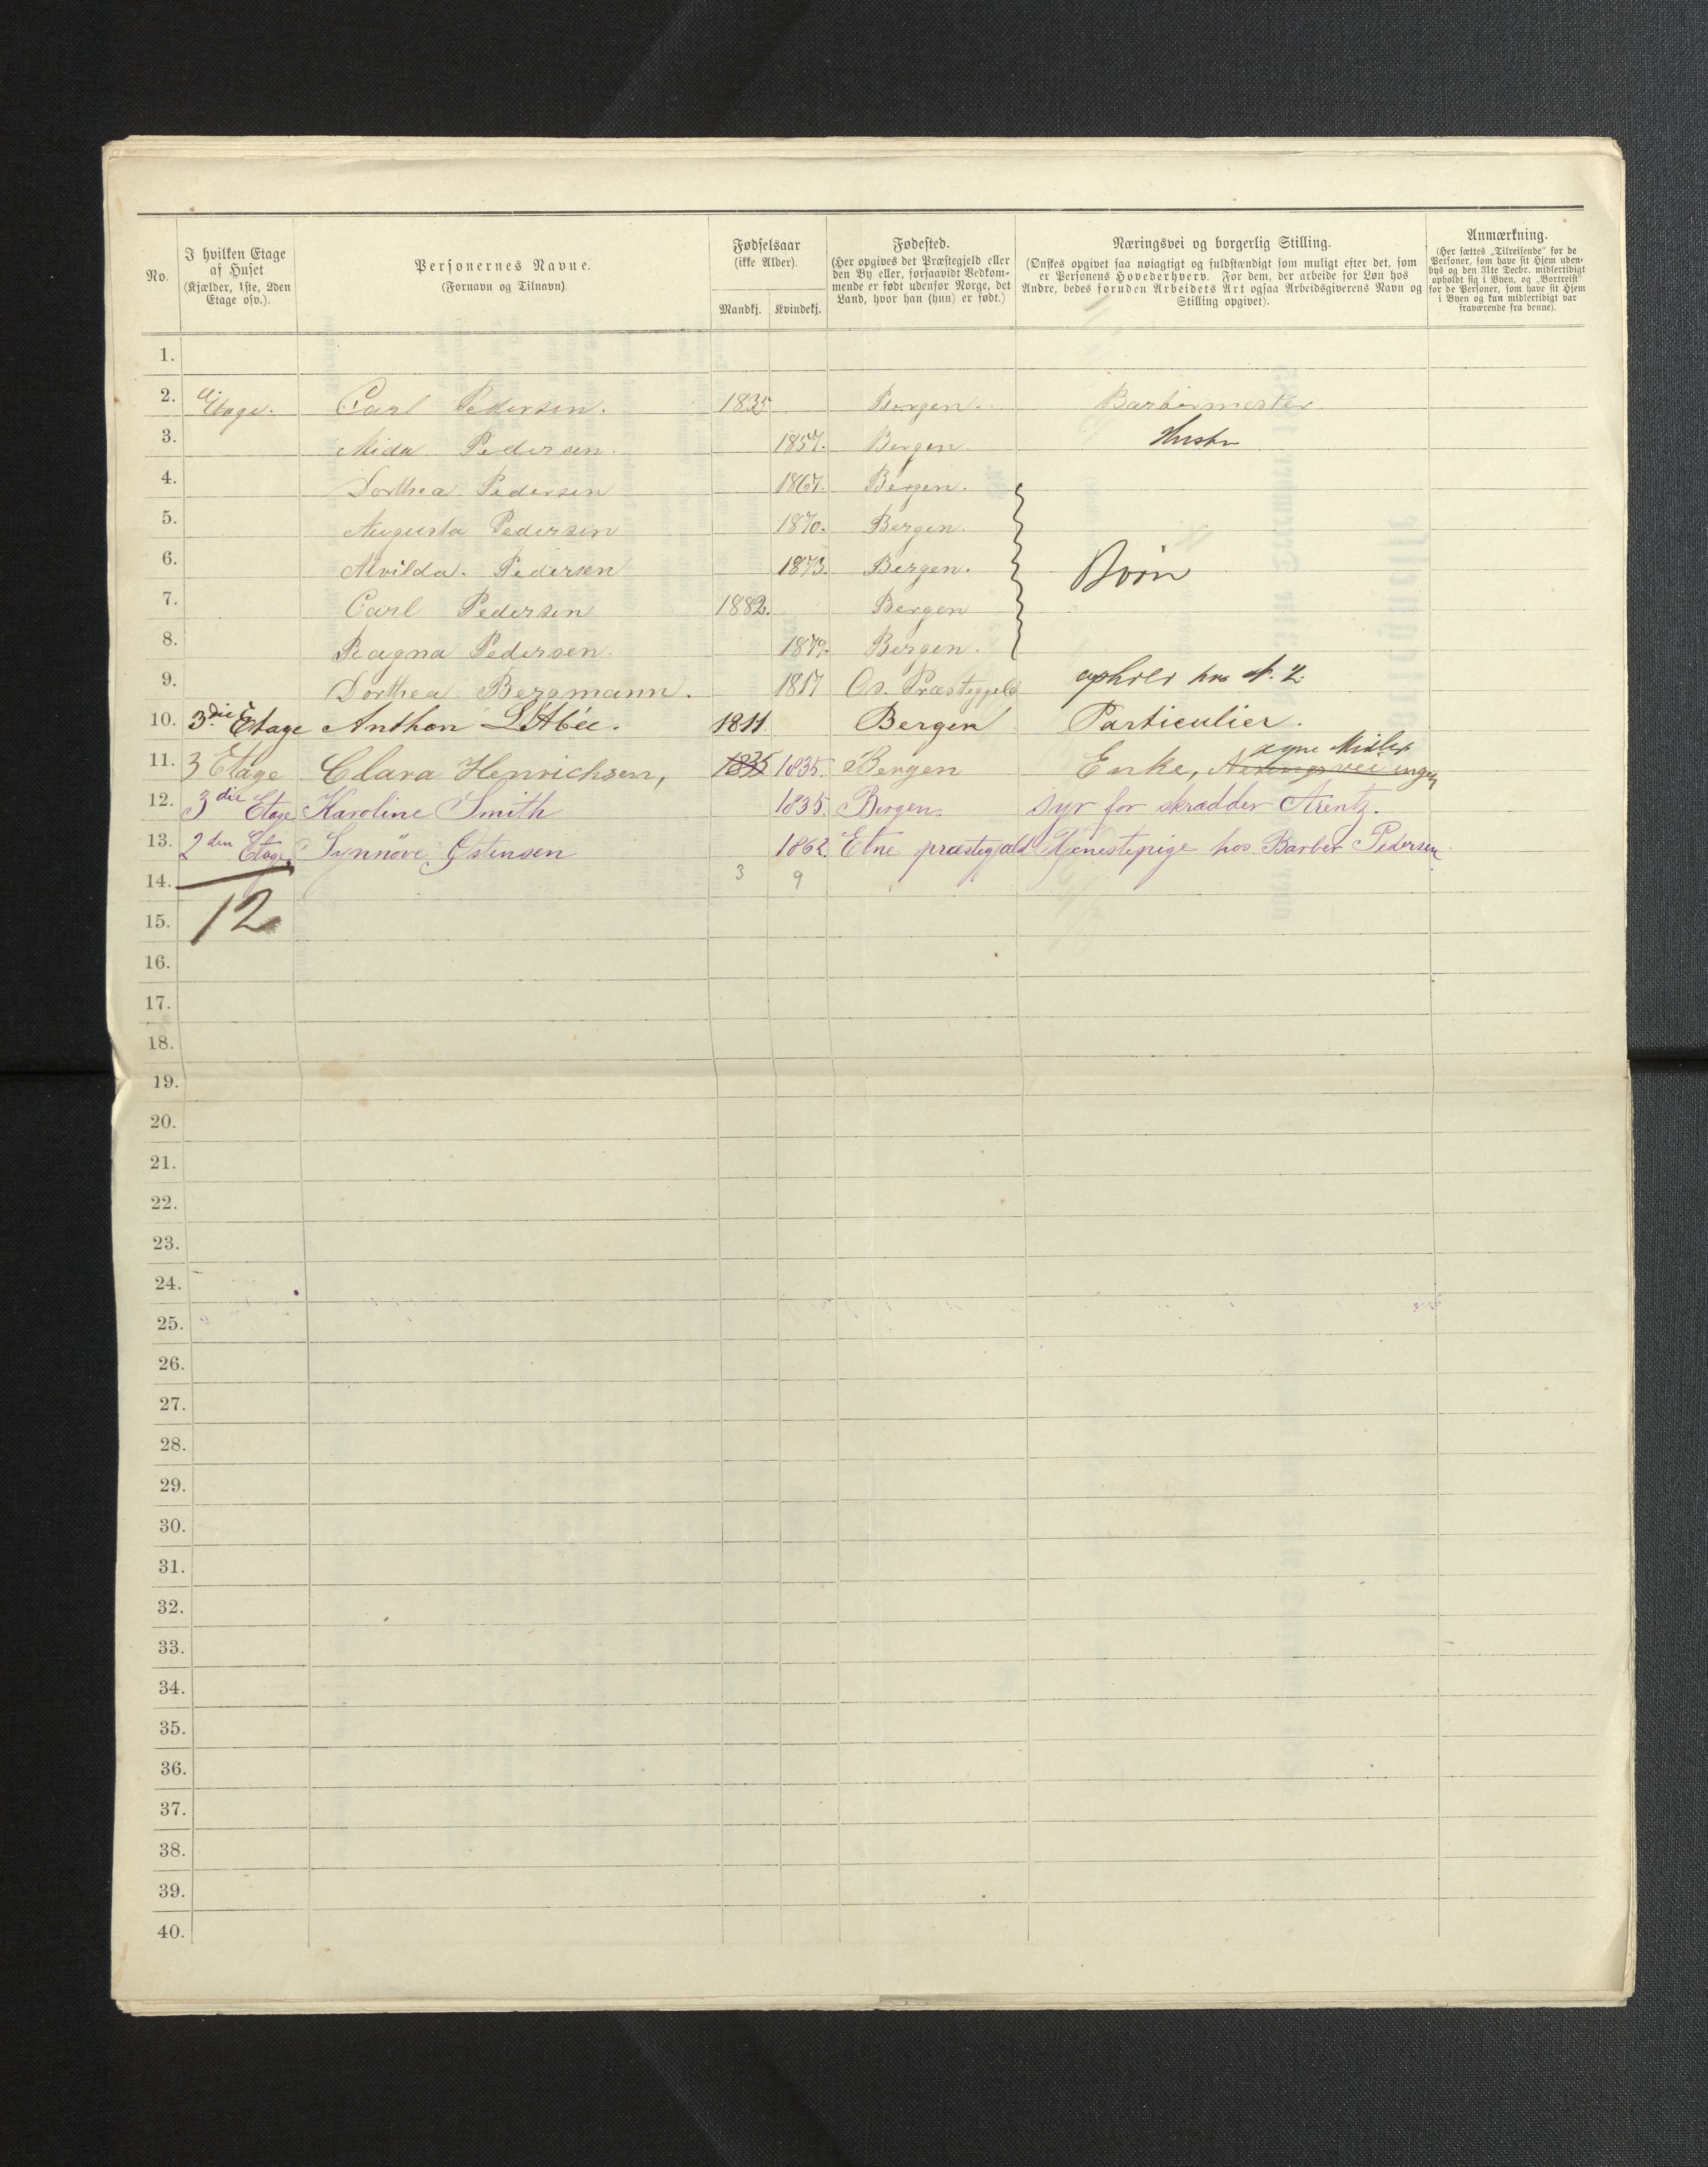 No.
I hvilken Etage af Huset (Kjælder, 1ste, 2den Etage osv.).
Personernes Navne. (Fornavn og Tilnavn).
Fødselsaar (ikke Alder).
Mandkj. Kvindekj.
Fødested. (Her opgives det Præstegjeld eller den By eller, forsaavidt Vedkommende er født udenfor Norge, det Land, hvor han (hun) er født.)
Næringsvei og borgerlig Stilling. (Ønskes opgivet saa nøiagtigt og fuldstændigt som muligt efter det, som er Personens Hovederhverv. For dem, der arbeide for Løn hos Andre, bedes foruden Arbeidets Art ogsaa Arbeidsgiverens Navn og Stilling opgivet).
Anmærkning. (Her sættes „Tilreisende" for de Personer, som have sit Hjem udenbys og den 31te Decbr. midlertidigt opholdt sig i Byen, og „Bortreist" for de Personer, som have sit Hjem i Byen og kun midlertidigt var fraværende fra denne).
1.
2. Etage. Carl Pedersen. 1835 Bergen. Barbermester
3. Mida Pedersen. 1857. Bergen. Hustr
4. Dorthea Pedersen 1867. Bergen.
5. Augusta Pedersen 1870. Bergen.
6. Alvilda. Pedersen 1873. Bergen. Børn
7. Carl Pedersen 1882. Bergen
8. Ragna Pedersen. 1879. Bergen.
9. Dorthea Bergmann. 1817 Os. Præstegjeld ophold hos N. 2
10. 3die Etage Anthon L'Abée. 1811 Bergen Particulier.
egne Midler
11. 3 Etage Clara Henrichsen, 1835 1835. Bergen Enke, Næringsvei ingen
12. 3die Etage Karoline Smith 1835. Bergen. Syr for skrædder Arentz.
13. 2den Etage. Synnöve Östensen 1862. Etne præstegjæld Tjenestepige hos Barber Pedersen
14. 3 9
15. 12
16.
17.
18.
19.
20.
21.
22.
23.
24.
25.
26.
27.
28.
29.
30.
31.
32.
33.
34.
35.
36.
37.
38.
39.
40.